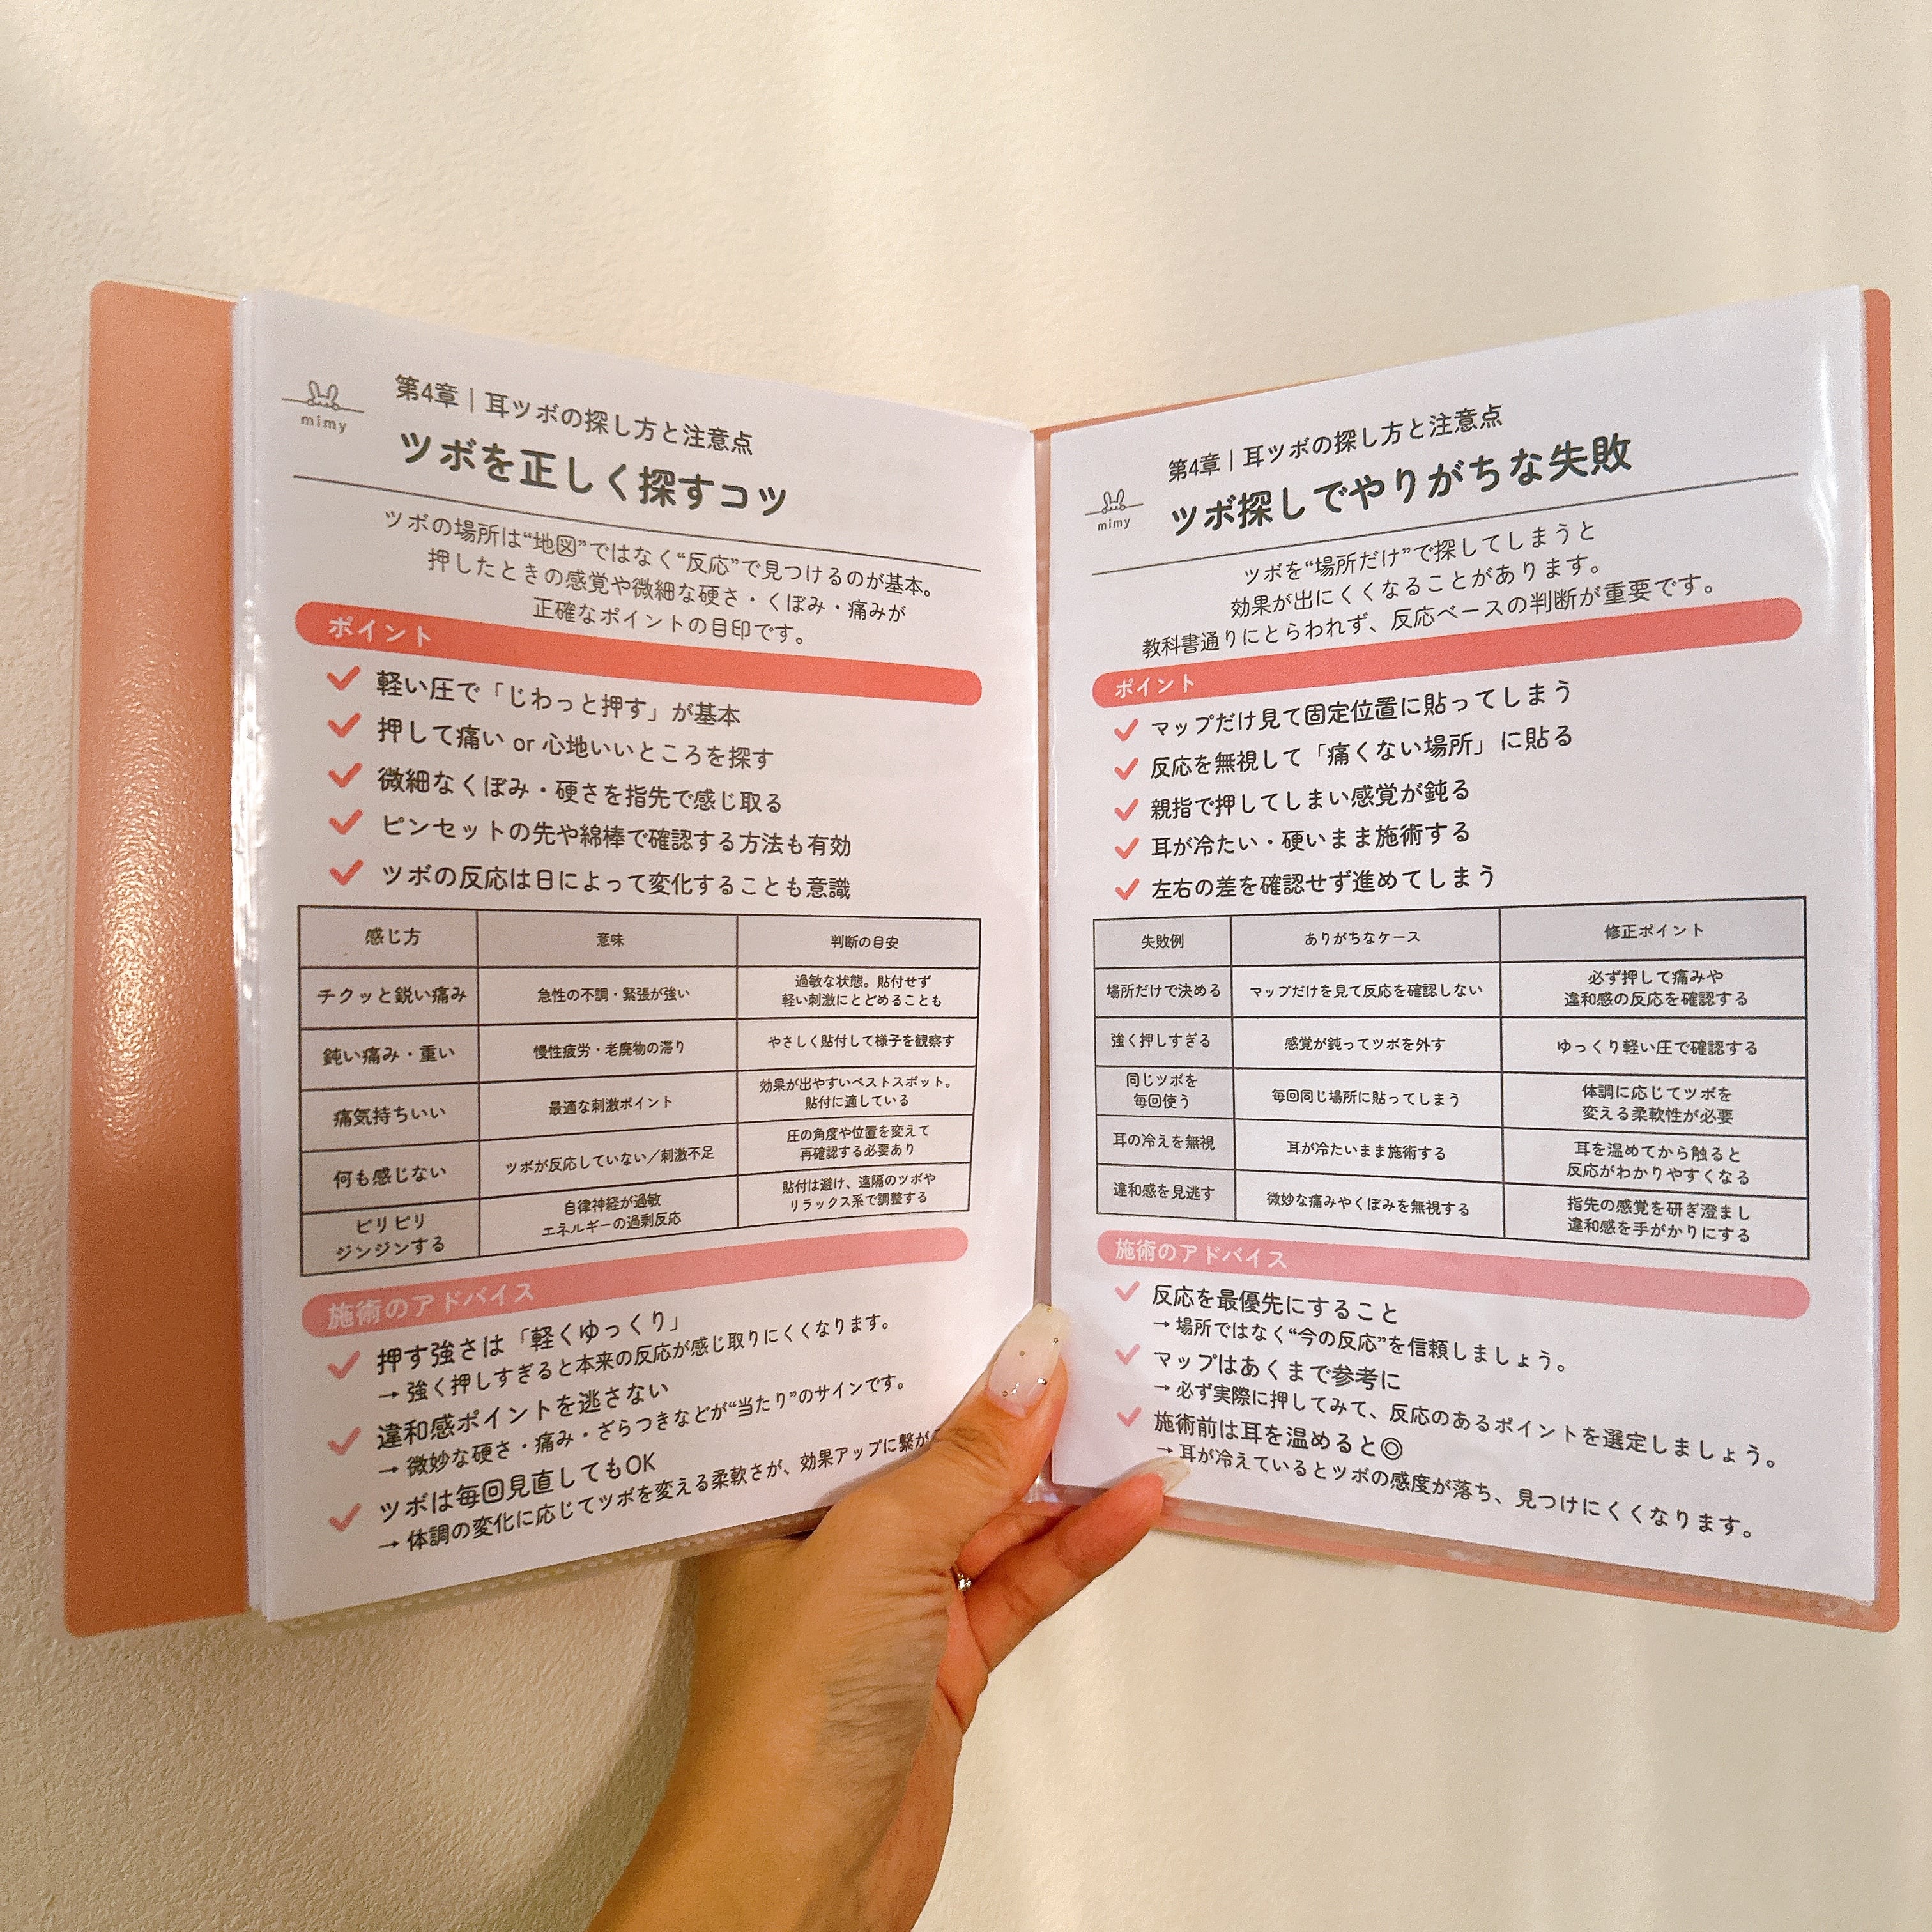 mimy
第4章｜耳ツボの探し方と注意点
ツボを正しく探すコツ
ツボの場所は“地図”ではなく“反応”で見つけるのが基本。
押したときの感覚や微細な硬さ・くぼみ・痛みが
正確なポイントの目印です。
ポイント
軽い圧で「じわっと押す」が基本
押して痛い or 心地いいところを探す
微細なくぼみ・硬さを指先で感じ取る
ピンセットの先や綿棒で確認する方法も有効
ツボの反応は日によって変化することも意識
感じ方 意味 判断の目安
チクッと鋭い痛み 急性の不調・緊張が強い 過敏な状態。貼付せず
軽い刺激にとどめることも
鈍い痛み・重い 慢性疲労・老廃物の滞り やさしく貼付して様子を観察す
痛気持ちいい 最適な刺激ポイント 効果が出やすいベストスポット。
貼付に適している
何も感じない ツボが反応していない／刺激不足 圧の角度や位置を変えて
再確認する必要あり
ピリピリ
ジンジンする 自律神経が過敏
エネルギーの過剰反応 貼付は避け、遠隔のツボや
リラックス系で調整する
施術のアドバイス
押す強さは「軽くゆっくり」
→ 強く押しすぎると本来の反応が感じ取りにくくなります。
違和感ポイントを逃さない
→ 微妙な硬さ・痛み・ざらつきなどが“当たり”のサインです。
ツボは毎回見直してもOK
→ 体調の変化に応じてツボを変える柔軟さが、効果アップに繋が
mimy
第4章｜耳ツボの探し方と注意点
ツボ探しでやりがちな失敗
ツボを“場所だけ”で探してしまうと
効果が出にくくなることがあります。
教科書通りにとらわれず、反応ベースの判断が重要です。
ポイント
マップだけ見て固定位置に貼ってしまう
反応を無視して「痛くない場所」に貼る
親指で押してしまい感覚が鈍る
耳が冷たい・硬いまま施術する
左右の差を確認せず進めてしまう
失敗例 ありがちなケース 修正ポイント
場所だけで決める マップだけを見て反応を確認しない 必ず押して痛みや
違和感の反応を確認する
強く押しすぎる 感覚が鈍ってツボを外す ゆっくり軽い圧で確認する
同じツボを
毎回使う 毎回同じ場所に貼ってしまう 体調に応じてツボを
変える柔軟性が必要
耳の冷えを無視 耳が冷たいまま施術する 耳を温めてから触ると
反応がわかりやすくなる
違和感を見逃す 微妙な痛みやくぼみを無視する 指先の感覚を研ぎ澄まし
違和感を手がかりにする
施術のアドバイス
反応を最優先にすること
→ 場所ではなく“今の反応”を信頼しましょう。
マップはあくまで参考に
→ 必ず実際に押してみて、反応のあるポイントを選定しましょう。
施術前は耳を温めると◎
→ 耳が冷えているとツボの感度が落ち、見つけにくくなります。